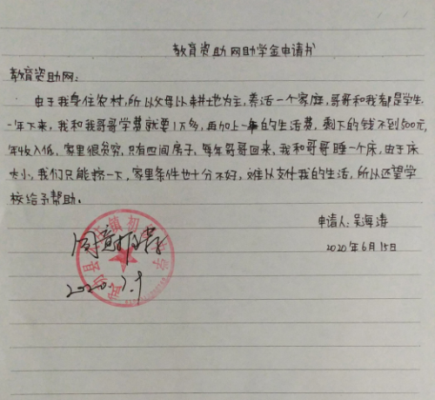 教育资助网助学金申请书
教育资助网:
由于我身住农村,所以父母以耕地为主,养活一个家庭,哥哥和我都是学生,
一年下来,我和我哥哥学费就要1万多,再加上一年的生活费,剩下的钱不到500元,
年收入低、家里很贫穷,只有四间房子,每年哥哥回来,我和哥哥睡一个床,由于床
太小,我们只能挤一下,家里条件也十分不好,难以支付我的生活,所以还望学
校给予帮助。
申请人:吴海涛
2020年6月15日
2020.7.9